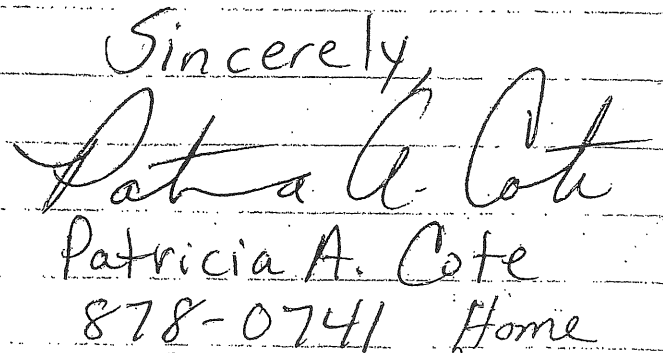 Sincerely,
Patricia A. Cote
Patricia A. Cote
878-0741 Home